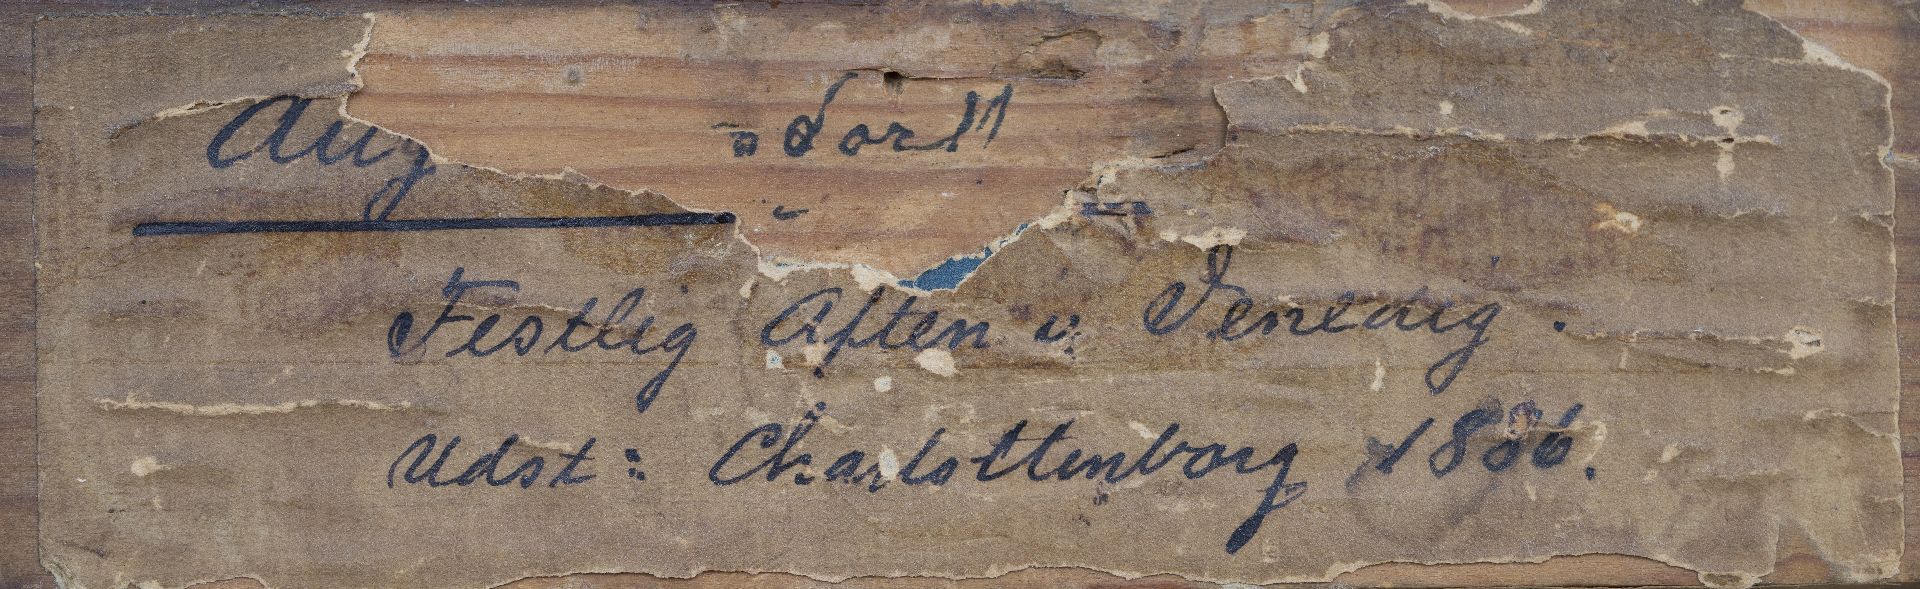 Aug
Festlig Aften i Venedig.
Udst: Charlottenborg 1886.